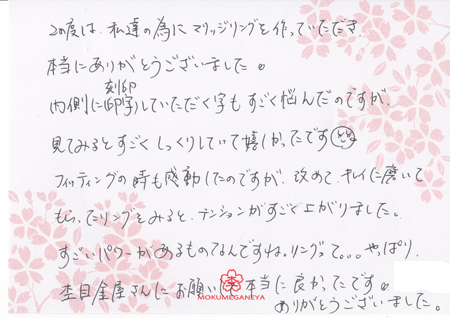 この度は、私達の為にマリッジリングを作っていただき
本当にありがとうございました。
刻印
内側に(印字)していただく字もすごく悩んだのですが、
見てみるとすごくしっくりしていて嬉しかったです
フィッティングの時も感動したのですが、改めて、キレイに磨いて
もらったリングをみると、テンションがすごく上がりました。
すごいパワーがあるものなんですね。リングって。。。やっぱり、
杢目金屋さんにお願いし 本当に良かったです。
MOKUMEGANEYA
ありがとうございました。